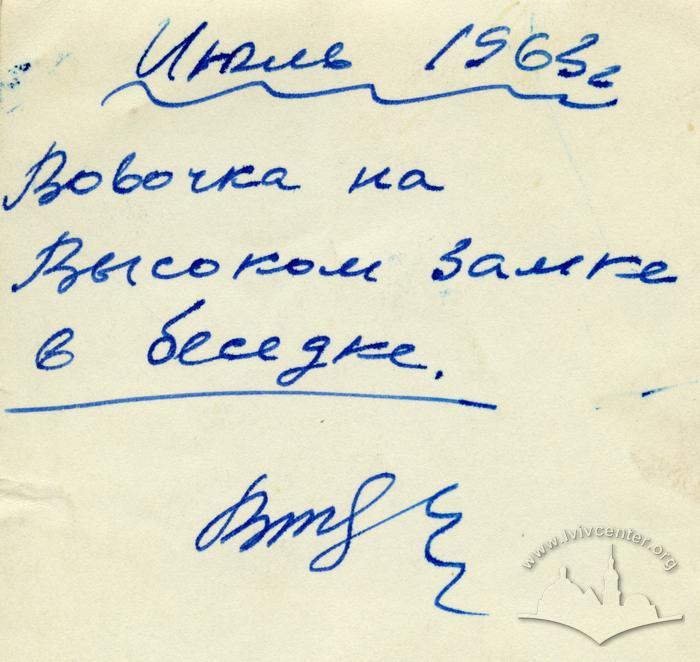 Июль 1963г
Вовочка на
Высоком замке
в беседке.
www.lvivcenter.org